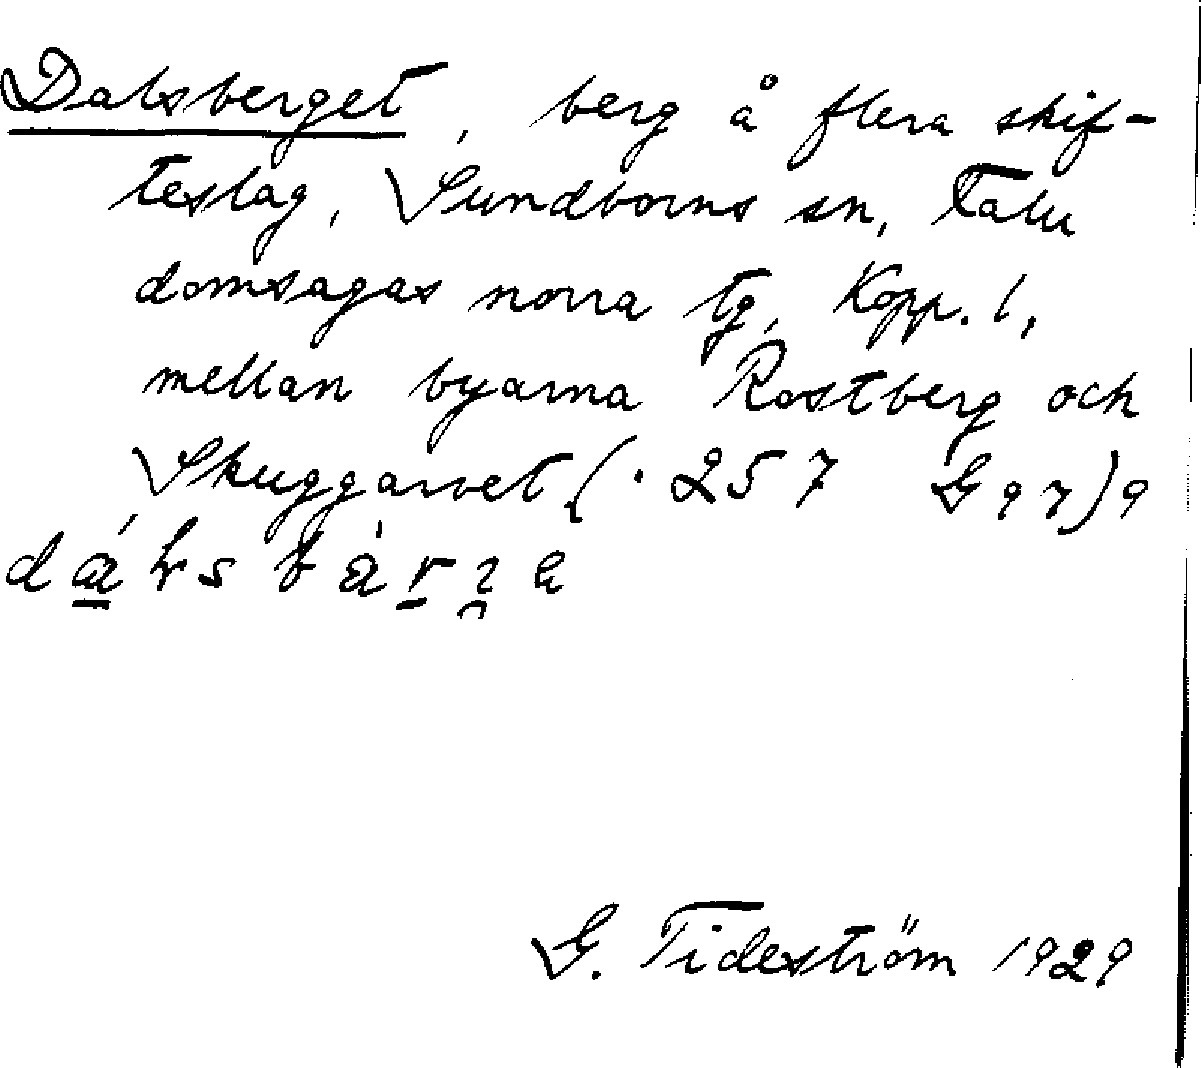 Dalsberget, berg å flera skif-
teslag, Sundborns sn, Falu
domsagas norra tg, Kopp. l,
mellan byarna Rostberg och
Skuggarvet (. 257 G 97) 9
G. Tideström 1929